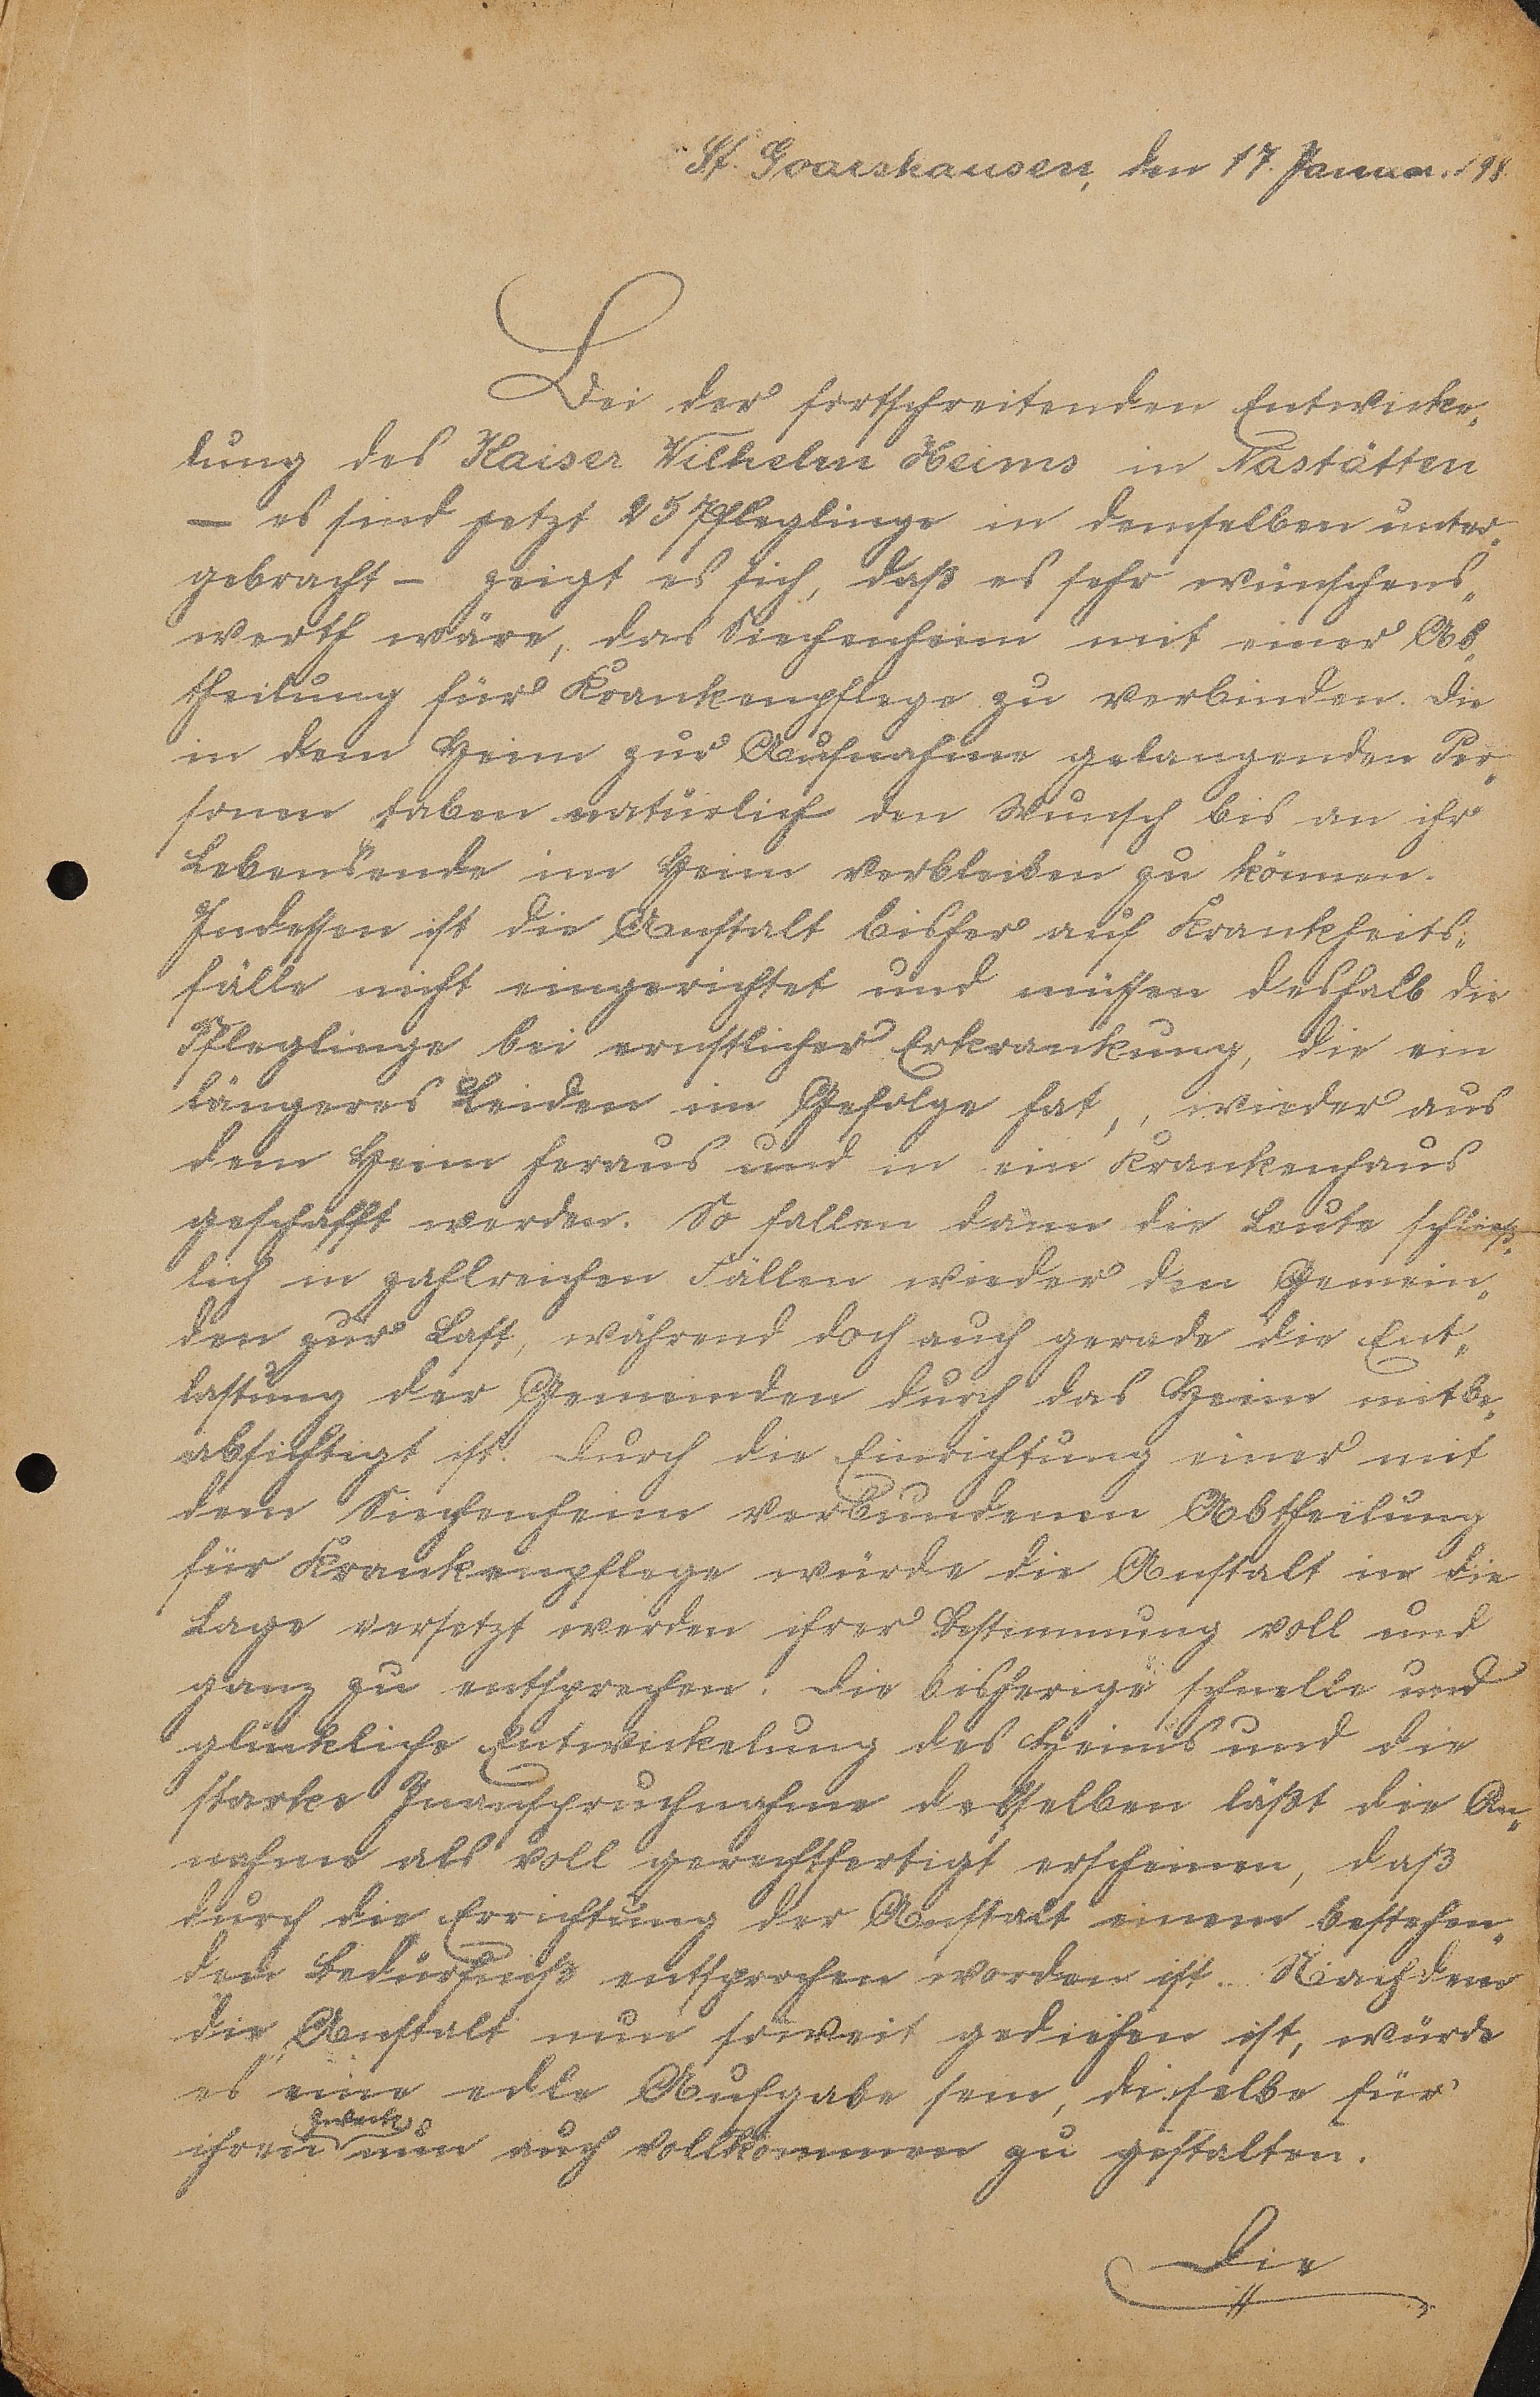 St. Goarshausen, den 17. Januar 198
Bei der fortschreitenden Entwicke-
lung des Kaiser Wilhelm Heims in Nastätten
— es sind jetzt 25 Pfleglinge in demselben unter-
gebracht — zeigt es sich, daß es sehr wünschens-
werth wäre, das Siechenheim mit einer Ab-
theilung für Krankenpflege zu verbinden. Die
in dem Heim zur Aufnahme gelangenden Per-
sonen haben natürlich den Wunsch bis an ihr
Lebensende im Heim verbleiben zu können.
Indessen ist die Anstalt bisher auf Krankheits-
fälle nicht eingerichtet und müssen deshalb die
Pfleglinge bei ernstlicher Erkrankung, die ein
längeres Leiden im Gefolge hat, wieder aus
dem Heim heraus und in ein Krankenhaus
geschafft werden. So fallen dann die Leute schließ-
lich in zahlreichen Fällen wieder den Gemein-
den zur Last, während doch auch gerade die Ent-
lastung der Gemeinden durch das Heim mitbe-
absichtigt ist. Durch die Einrichtung einer mit
dem Siechenheim verbundenen Abtheilung
für Krankenpflege würde die Anstalt in die
Lage versetzt werden ihrer Bestimmung voll und
ganz zu entsprechen. Die bisherige schnelle und
glückliche Entwickelung des Heims und die
starke Inanspruchnahme desselben läßt die An-
nahme als voll gerechtfertigt erscheinen, daß
durch die Errichtung der Anstalt einem bestehen-
den Bedürfniß entsprochen worden ist. Nachdem
die Anstalt nun soweit gediehen ist, würde
es eine edle Aufgabe sein, dieselbe für
ihren Zweck nun auch vollkommen zu gestalten.
Die